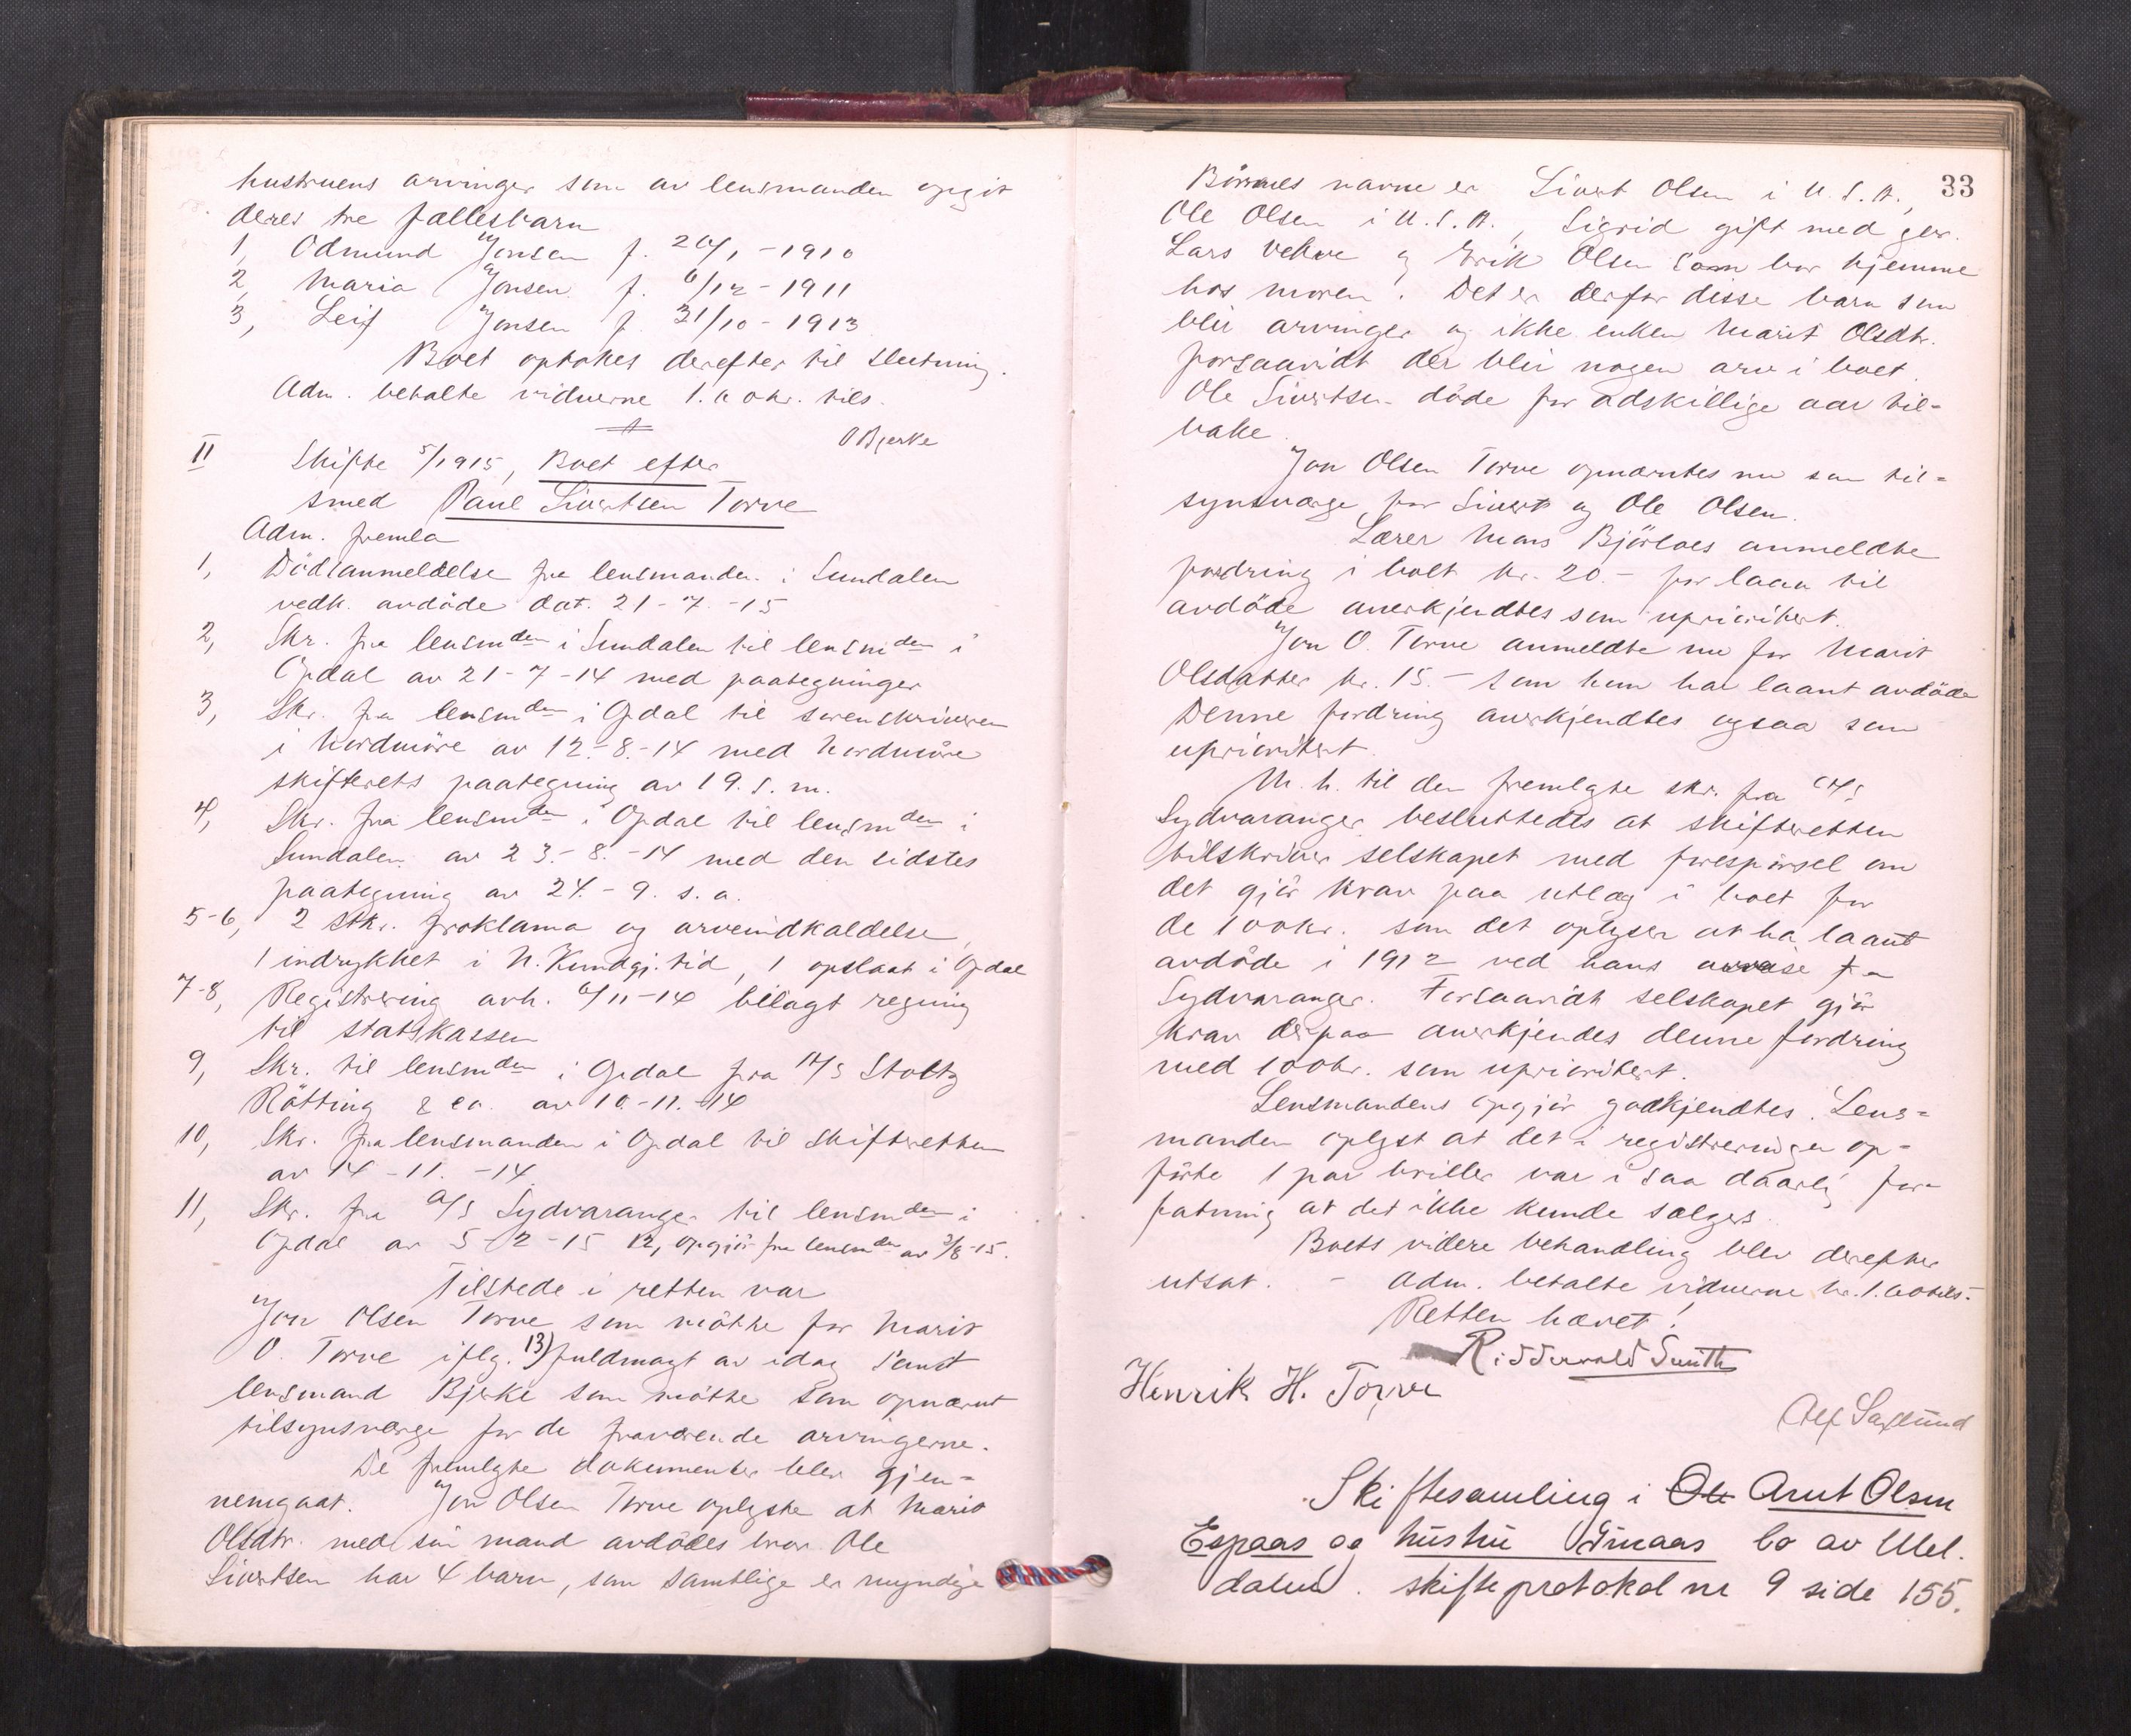 hustruens arvinger som av lensmanden opgit
deres tre fællesbarn
1, Odmund Jonsen f. 20/1-1910
2, Maria Jonsen f. 6/12-1911
3, Leif Jonsen f. 31/10-1913
Boet optokes derefter til slutning.
Adm. betalte vidnerne 1.60 kr. tils.
O Bjerke
II Skifte 5/1915, Boet efter
smed Paul Sivertsen Torve
Adm. fremla
1, Dödsanmeldelse fra lensmanden i Sundalen
vedk. avdöde dat. 21-7-15
2, Skr. fra lensmden i Sundalen til lensmden i
Opdal av 21-7-14 med paategninger
3, Skr. fra lensmden i Opdal til sorenskriveren
i Nordmöre av 12-8-14 med Nordmöre
skifterets paategning av 19. s. m.
4, Skr. fra lensmden i Opdal til lensmden i
Sundalen av 23-8-14 med den sidstes
paategning av 24.-9. s. a.
5-6, 2 stkr. proklama og arveindkaldelse,
1 indrykket i N. Kundgj. tid, 1 opslaat i Opdal
7-8, Registrering avh. 6/11-14 bilagt regning
til statskassen
9, Skr. til lensmden i Opdal fra A/S Stoltz
Rötting & Co. av 10-11.-14
10, Skr. fra lensmanden i Opdal til skifteretten
av 14-11.-14
11, Skr. fra A/S Sydvaranger til lensmden i
Opdal av 5-2-15 12, opgjör fra lensmden av 3/8-15.
Tilstede i retten var
Jon Olsen Torve som mötte for Marit
O. Torve iflg. 13) fuldmagt av idag samt
lensmand Bjerke som mötte som opnævnt
tilsynsverge for de fraværende arvingerne.
De fremlagte dokumenter blev gjen-
nemgaat. Jon Olsen Torve oplyste at Marit
Olsdtr. med sin mand avdödes bror Ole
Sivertsen har 4 barn, som samtlige er myndige
33
Börnenes navne er Sivert Olsen i U.S.A.,
Ole Olsen i U.S.A., Sigrid gift med
Lars Vekve og Erik Olsen som bor hjemme
hos moren. Det er derfor disse barn som
blir arvinger og ikke enken Marit Olsdtr.
forsaavidt der blir nogen arv i boet.
Ole Sivertsen döde for adskillige aar til-
bake.
Jon Olsen Torve opnævntes nu som til-
synsverge for Sivert og Ole Olsen.
Lærer Mons Björlaes anmeldte
fordring i boet kr. 20.- for laan til
avdöde anerkjendtes som uprioritert.
Jon O. Torve anmeldte nu for Marit
Olsdatter kr. 15.- som hun har laant avdöde
Denne fordring anerkjendtes ogsaa som
uprioritert.
M. h. til den fremlagte skr. fra A/S
Sydvaranger besluttedes at skifteretten
tilskriver selskapet med forespörsel om
det gjör krav paa utlæg i boet for
de 100 kr. som det oplyser at ha laant
avdöde i 1912 ved hans avreise fra
Sydvaranger. Forsaavidt selskapet gjör
krav derpaa anerkjendes denne fordring
med 100 kr. som uprioritert.
Lensmandens opgjör godkjendtes. Lens-
manden oplyst at det i registreringen op-
förte 1 par briller var i saa daarlig for-
fatning at det ikke kunde sælges.
Boets videre behandling blev derefter
utsat. - Adm. betalte vidnerne kr. 1.60 tils.-
Retten hævet!
Ridderwold Smith
Henrik H. Torve
Alf Saxlund
Skiftesamling i Ole Arnt Olsen
Espaas og hustru bo av Mel-
dalen. skifteprotokol nr 9 side 155.